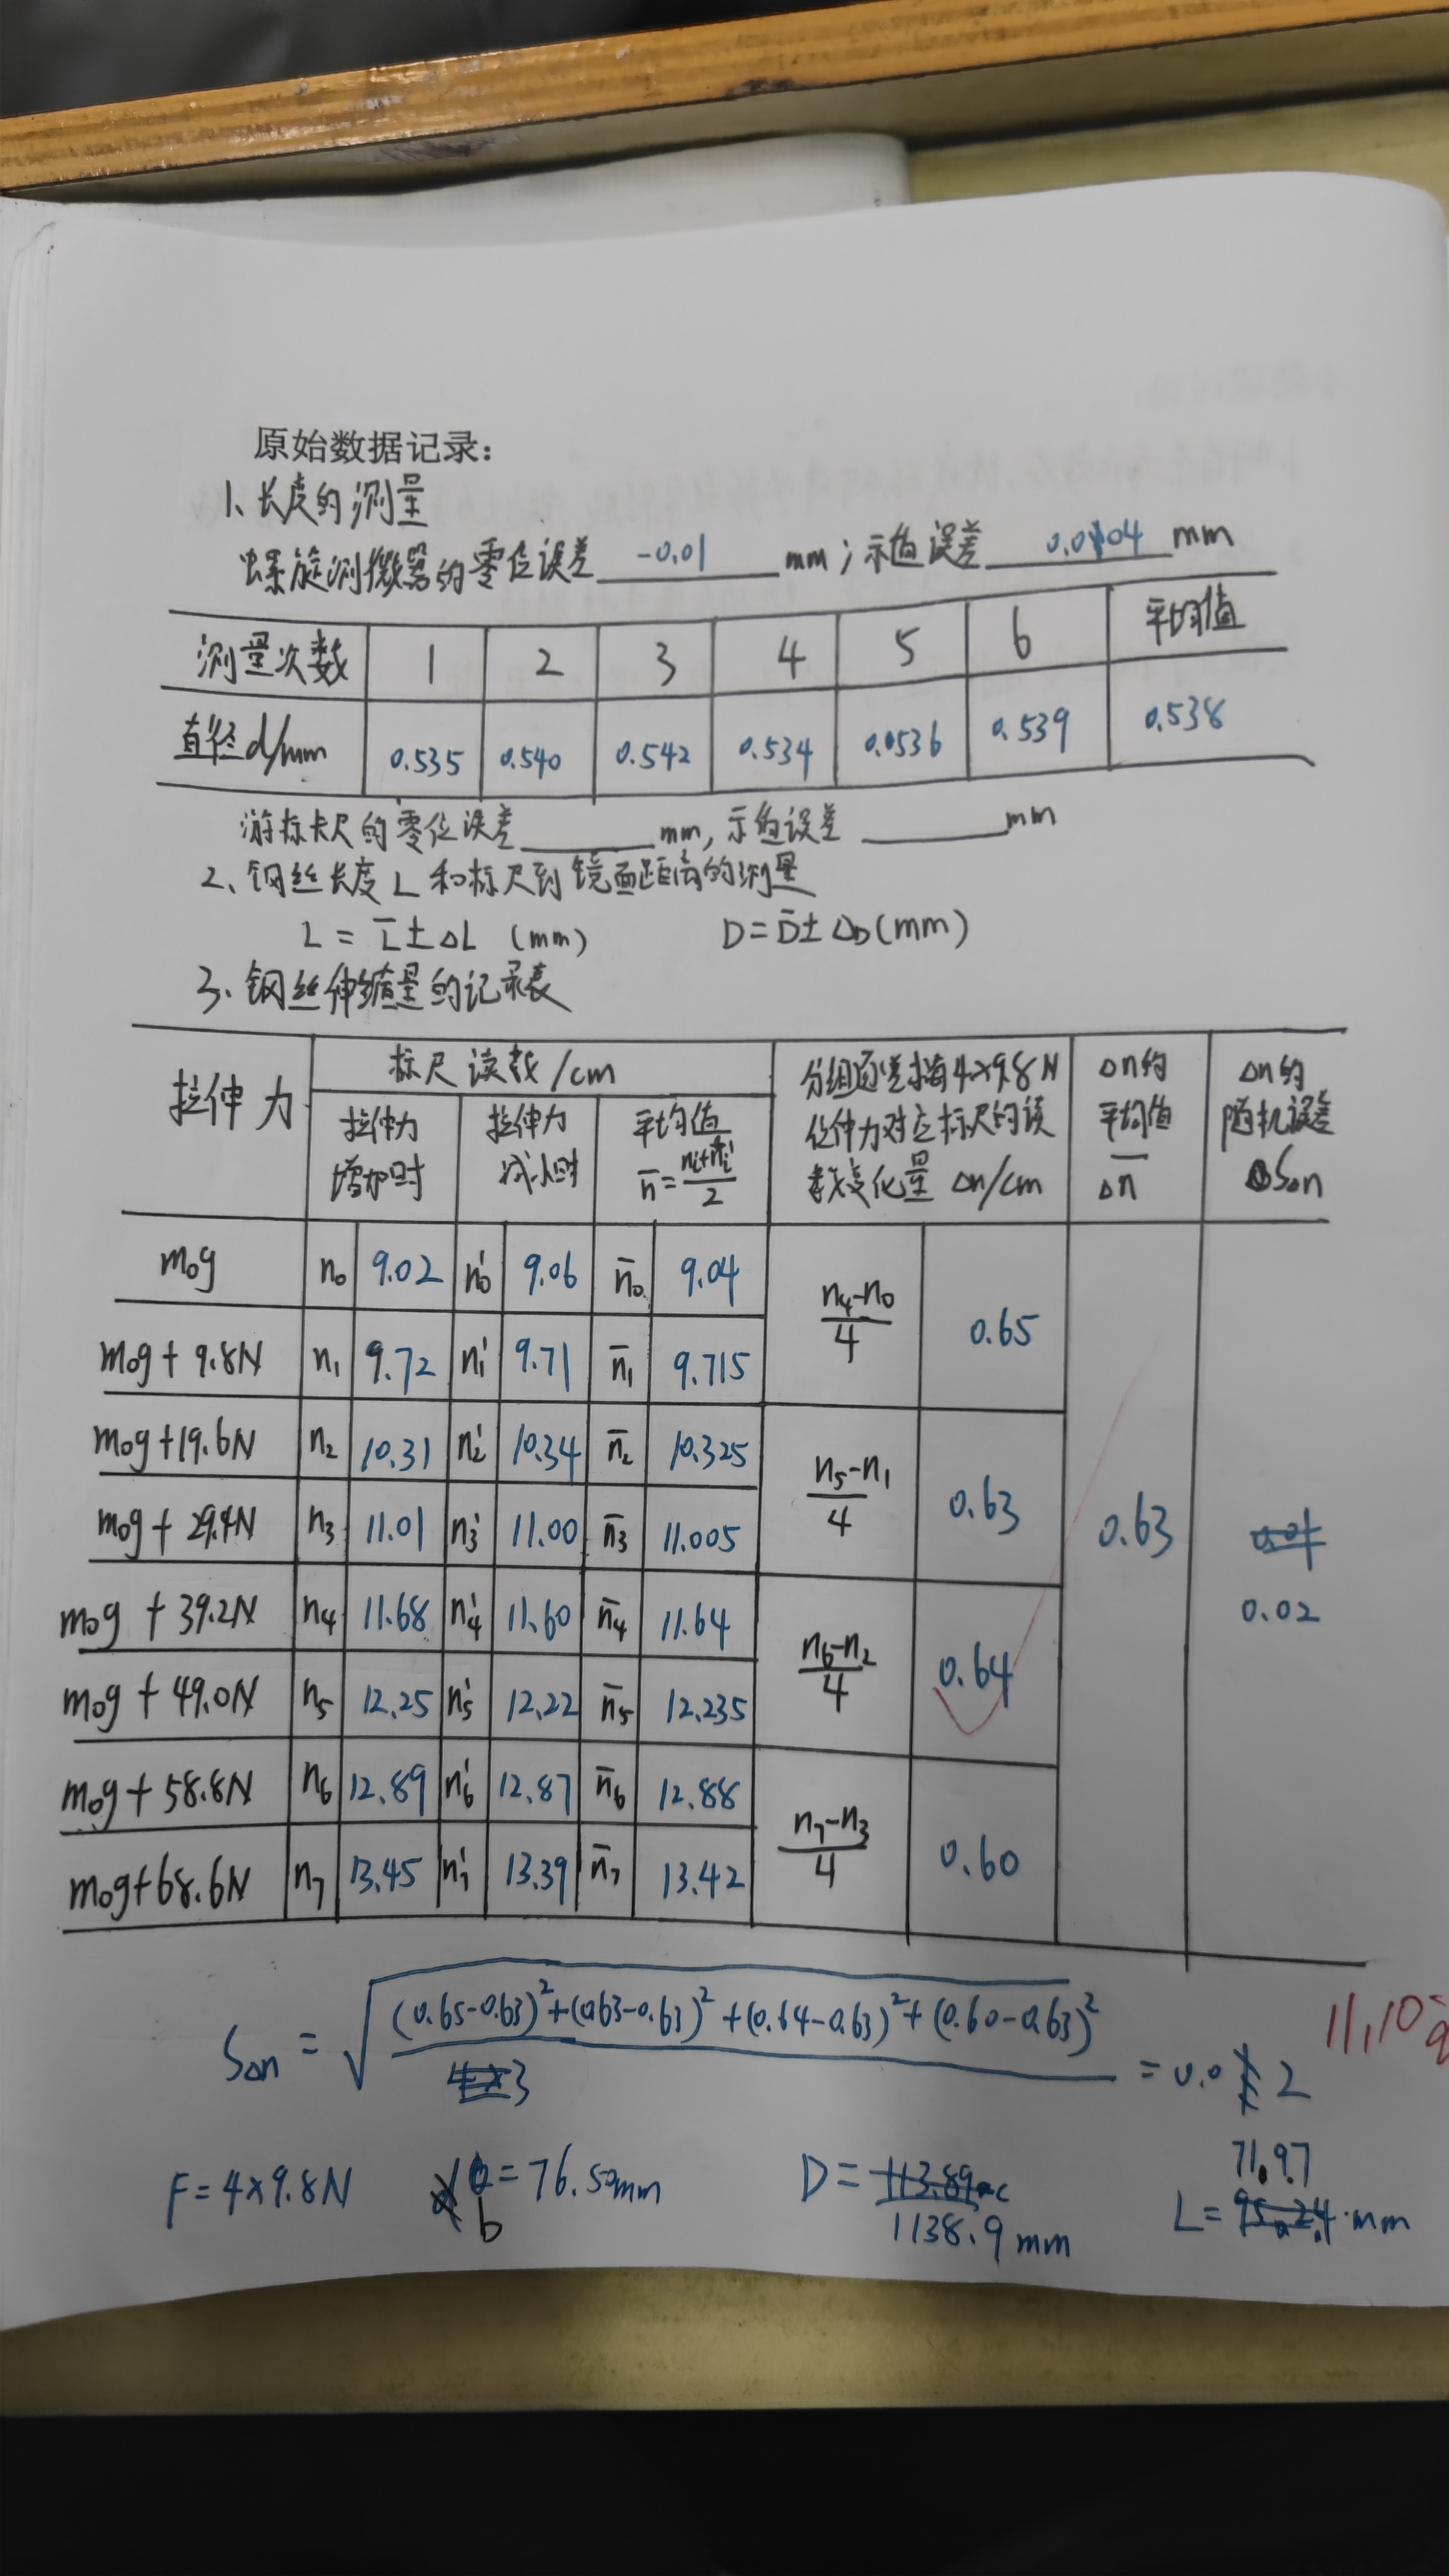 原始数据记录:
1、长度的测量
螺旋测微器的零位误差 -0.01 mm；示值误差 0.004 mm
测量次数 1 2 3 4 5 6 平均值
直径d/mm 0.535 0.540 0.542 0.534 0.536 0.539 0.538
游标卡尺的零位误差 mm, 示值误差 mm
2、钢丝长度L和标尺到镜面距离的测量
L = L̄ ± ΔL (mm) D = D̄ ± ΔD (mm)
3、钢丝伸缩量的记录表
拉伸力 标尺读数/cm 分组逐差求每4×9.8N Δn的 Δn的
拉伸力 拉伸力 平均值 拉伸力对应标尺的读 平均值 随机误差
增加时 减小时 n̄ = (nᵢ+nᵢ')/2 数变化量 Δn/cm Δn̄ SΔn
m₀g n₀ 9.02 n₀' 9.06 n̄₀ 9.04 (n₄-n₀)/4 0.65
m₀g + 9.8N n₁ 9.72 n₁' 9.71 n̄₁ 9.715
m₀g+19.6N n₂ 10.31 n₂' 10.34 n̄₂ 10.325 (n₅-n₁)/4 0.63
m₀g + 29.4N n₃ 11.01 n₃' 11.00 n̄₃ 11.005 0.63
m₀g + 39.2N n₄ 11.68 n₄' 11.60 n̄₄ 11.64 (n₆-n₂)/4 0.64 0.02
m₀g + 49.0N n₅ 12.25 n₅' 12.22 n̄₅ 12.235
m₀g + 58.8N n₆ 12.89 n₆' 12.87 n̄₆ 12.88 (n₇-n₃)/4 0.60
m₀g+68.6N n₇ 13.45 n₇' 13.39 n̄₇ 13.42
SΔn = √(((0.65-0.63)²+(0.63-0.63)²+(0.64-0.63)²+(0.60-0.63)²)/3) = 0.02
11,10
F = 4×9.8N b = 76.50mm D = 1138.9 mm L = 71.97 mm